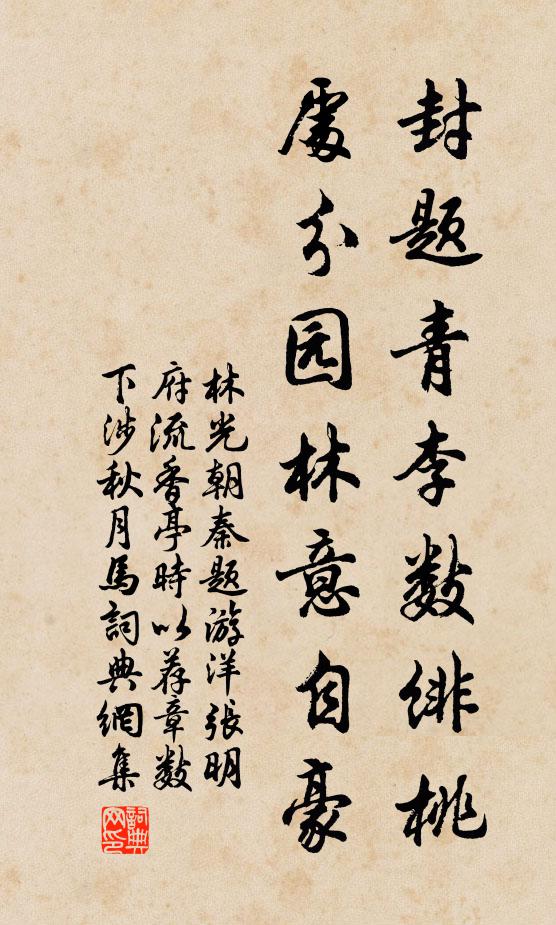 封题青李数绯桃
處分园林意自豪
林光朝奉题游洋張明
府流香亭時以荐章数
下涉秋月馬詞典網集
詞典网印